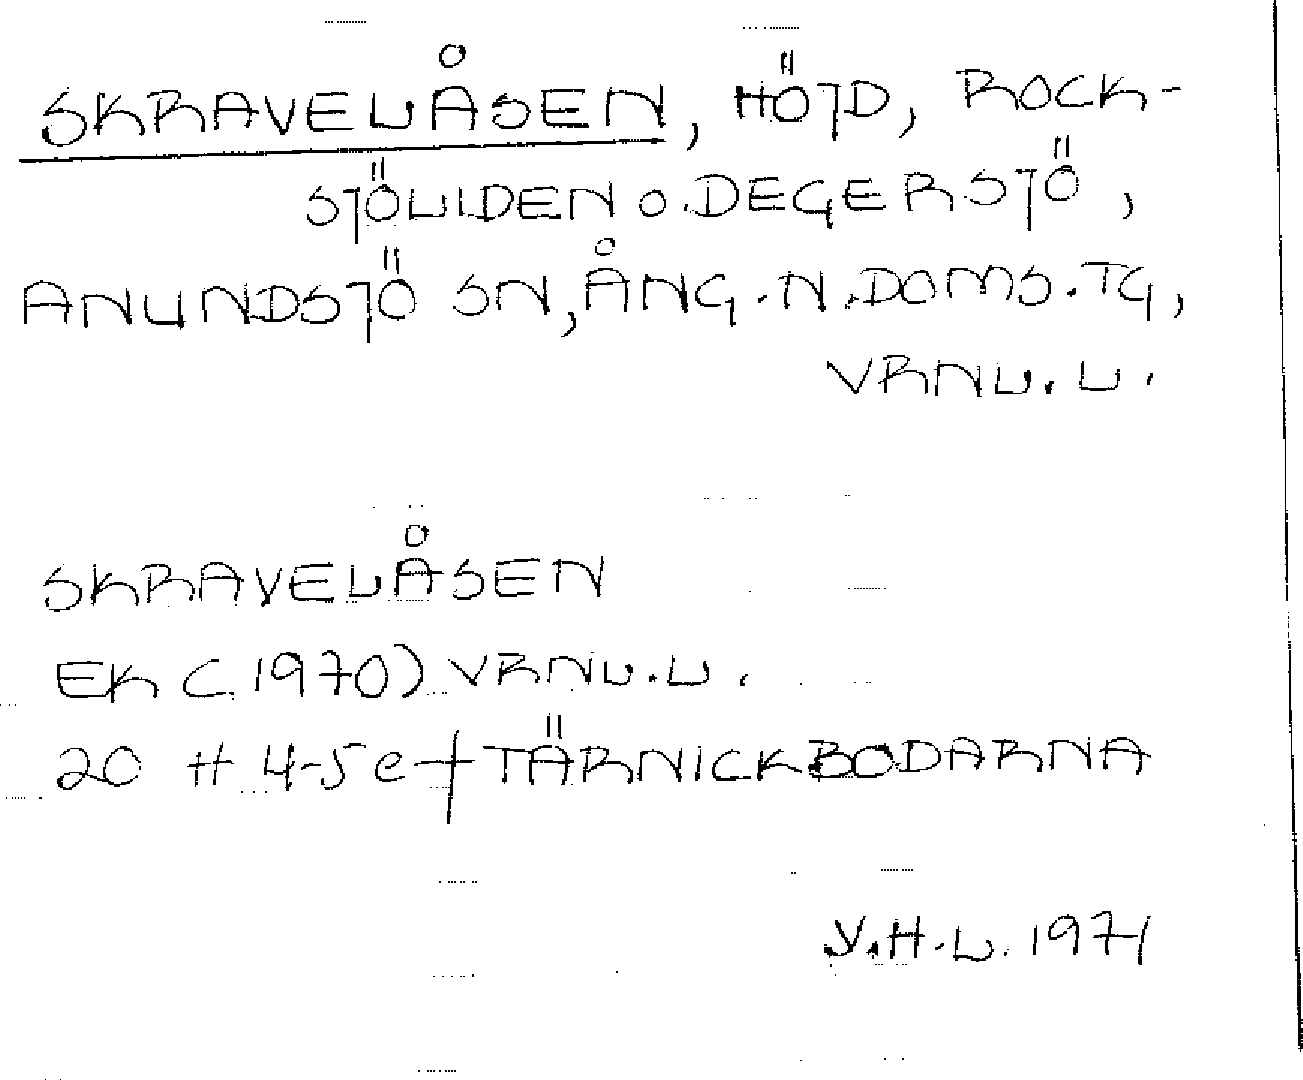 SKRAVELÅSEN, HÖJD, ROCK-
SJÖLIDEN O. DEGERSJÖ,
ANUNDSJÖ SN, ÅNG. N. DOMS. TG,
VRNL. L.
SKRAVELÅSEN
EK (1970) VRNL. L.
20 H 4-5 e f TÄRNICKBODARNA
Y.H.L. 1971